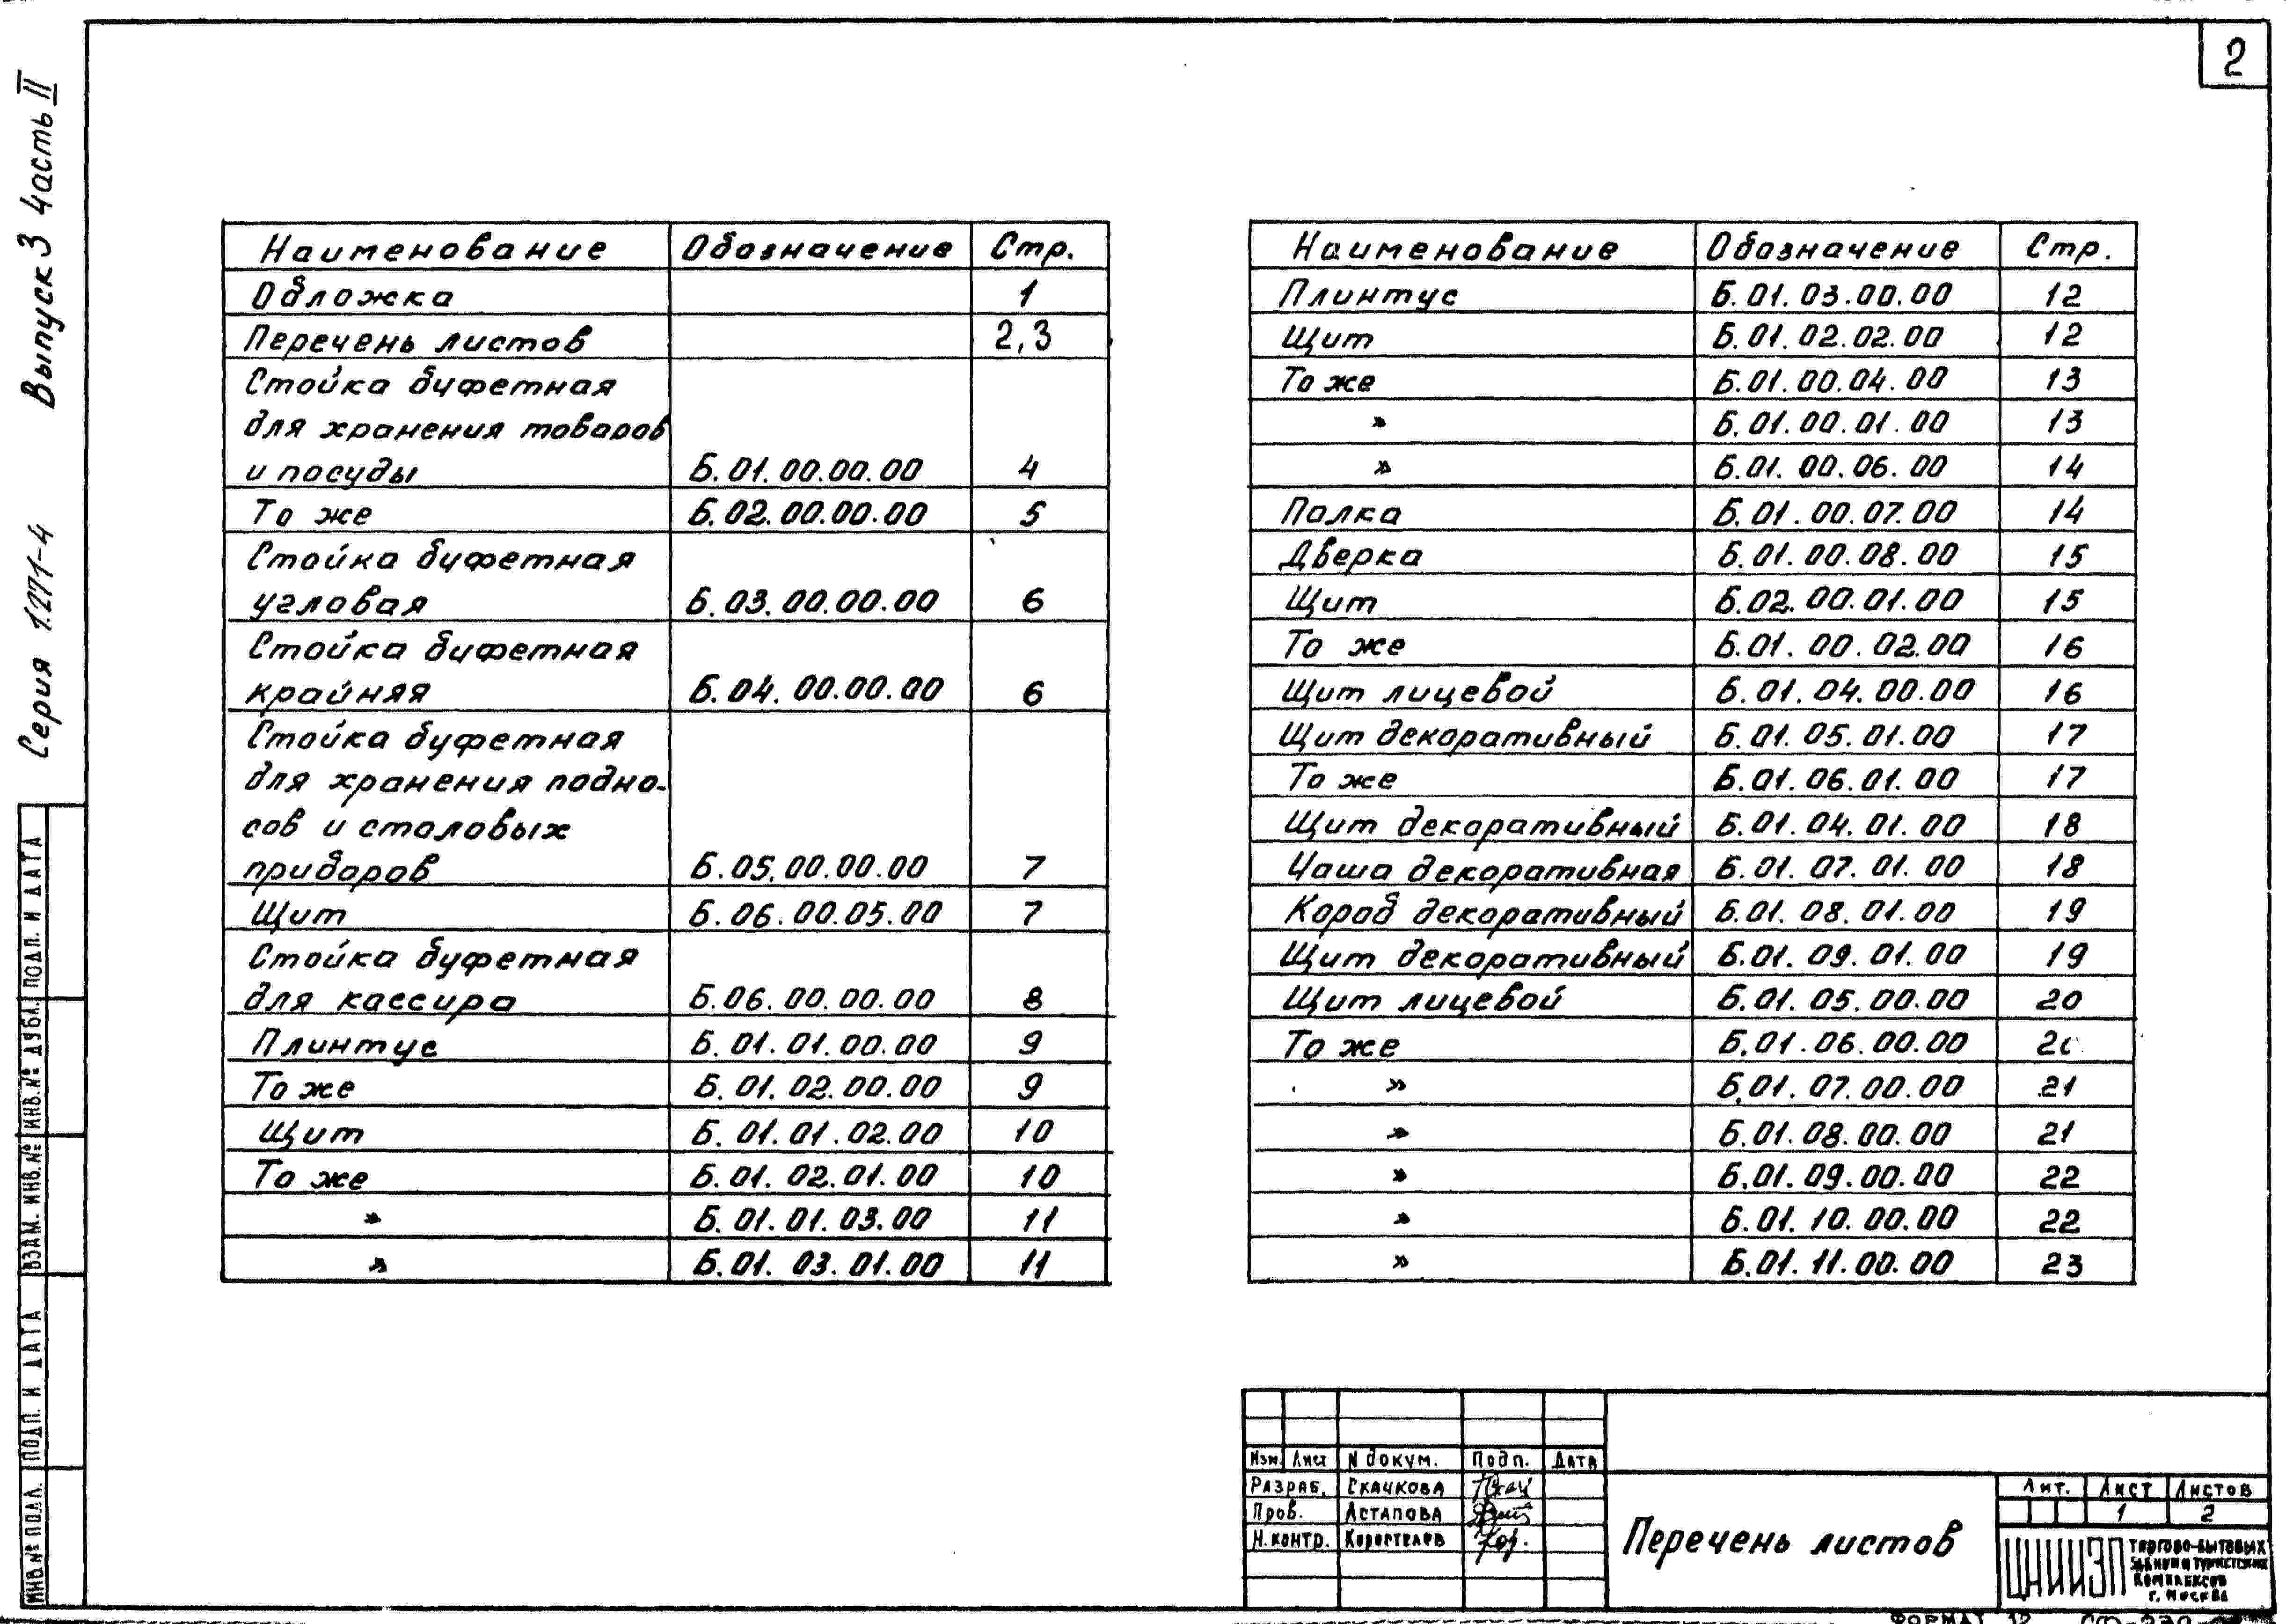 2
Серия 1.271-4 Выпуск 3 Часть II
Наименование Обозначение Стр.
Обложка 1
Перечень листов 2,3
Стойка буфетная
для хранения товаров
и посуды Б.01.00.00.00 4
То же Б.02.00.00.00 5
Стойка буфетная
угловая Б.03.00.00.00 6
Стойка буфетная
крайняя Б.04.00.00.00 6
Стойка буфетная
для хранения подно-
сов и столовых
приборов Б.05.00.00.00 7
Щит Б.06.00.05.00 7
Стойка буфетная
для кассира Б.06.00.00.00 8
Плинтус Б.01.01.00.00 9
То же Б.01.02.00.00 9
Щит Б.01.01.02.00 10
То же Б.01.02.01.00 10
» Б.01.01.03.00 11
» Б.01.03.01.00 11
Наименование Обозначение Стр.
Плинтус Б.01.03.00.00 12
Щит Б.01.02.02.00 12
То же Б.01.00.04.00 13
» Б.01.00.01.00 13
» Б.01.00.06.00 14
Полка Б.01.00.07.00 14
Дверка Б.01.00.08.00 15
Щит Б.02.00.01.00 15
То же Б.01.00.02.00 16
Щит лицевой Б.01.04.00.00 16
Щит декоративный Б.01.05.01.00 17
То же Б.01.06.01.00 17
Щит декоративный Б.01.04.01.00 18
Чаша декоративная Б.01.07.01.00 18
Короб декоративный Б.01.08.01.00 19
Щит декоративный Б.01.09.01.00 19
Щит лицевой Б.01.05.00.00 20
То же Б.01.06.00.00 20
» Б.01.07.00.00 21
» Б.01.08.00.00 21
» Б.01.09.00.00 22
» Б.01.10.00.00 22
» Б.01.11.00.00 23
ИНВ.№ ПОДЛ. ПОДП. И ДАТА ВЗАМ. ИНВ.№ ИНВ.№ ДУБЛ. ПОДП. И ДАТА
Изм. Лист N докум. Подп. Дата
Разраб. Скачкова
Пров. Астапова
Н.контр. Коростелев
Перечень листов
Лит. Лист Листов
1 2
ЦНИИЭП
торгово-бытовых
зданий и туристских
комплексов
г. Москва
ФОРМАТ 12